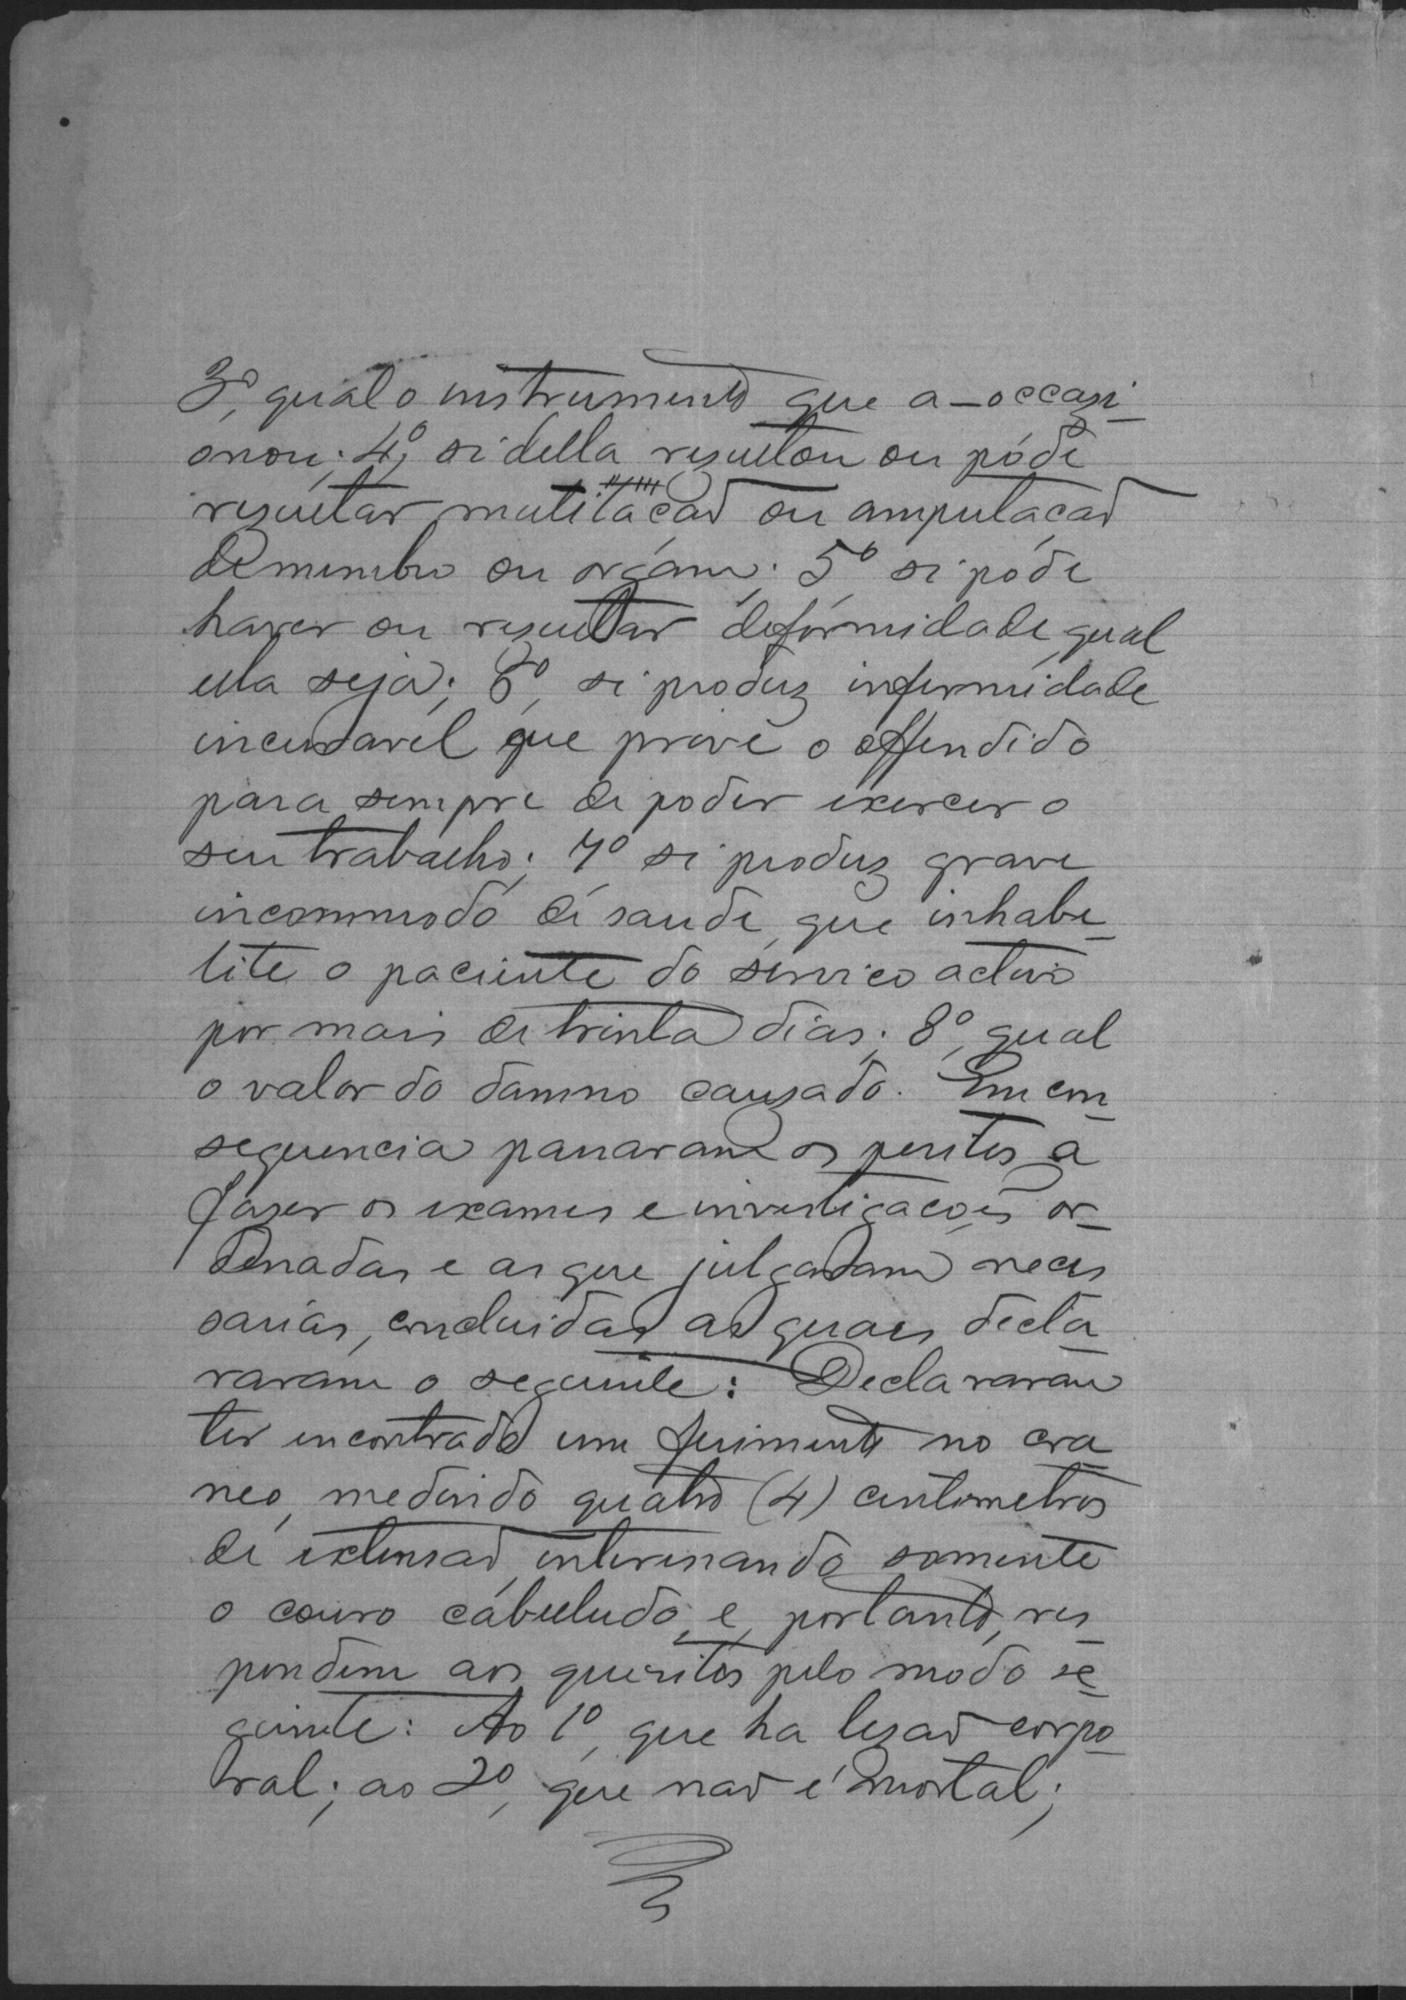 3º, qual o instrumento que a-occasi-
onou; 4º, si della rezultou ou póde
rezultar mutilação ou amputação
de membro ou orgam; 5º si póde
haver ou rezultar deformidade, qual
ella seja; 6º, si produz infermidade
incuravel que prive o offendido
para sempre de poder exercer o
seu trabalho; 7º si produz grave
incommodo de saude, que inhabe-
lite o paciente do serviço activo
por mais de trinta dias; 8º, qual
o valor do damno cauzado. Em con-
sequencia passaram os peritos a
fazer os exames e investigações or-
denadas e as que julgaram neces
sarias, concluidas as quaes decla-
raram o seguinte: Declararam
ter encontrado um ferimento no cra-
neo, medindo quatro (4) centimetros
de extensão, interessando somente
o couro cabelludo, e, portanto, res-
pondem aos quezitos pelo modo se-
guinte: Ao 1º, que ha lezão corpo-
ral; ao 2º, que não é mortal;